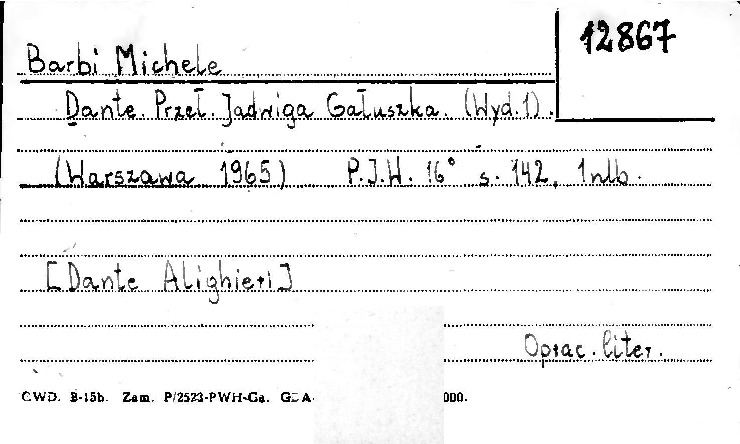 12867
Barbi Michele
Dante. Przeł. Jadwiga Gałuszka. (Wyd.1).
(Warszawa 1965) P.I.W. 16° s. 142, 1nlb.
[Dante Alighieri]
Oprac. liter.
CWD. B-15b. Zam. P/2523-PWH-Ga. 000.